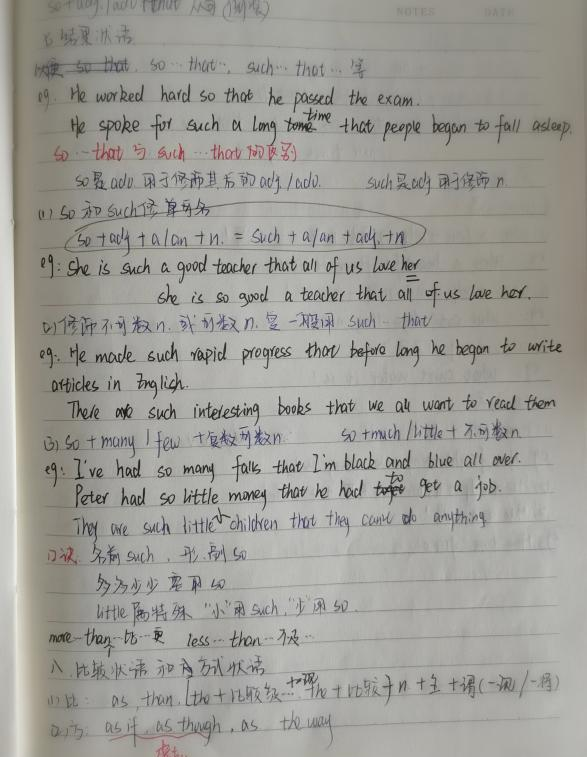 so+adj./adv. that 从句
NOTES DATE
结果状语
so that, so…that…, such…that…等
eg. He worked hard so that he passed the exam.
He spoke for such a long time that people began to fall asleep.
so…that 与 such…that 的区别
so是adv. 用于修饰其后的adj./adv. such是adj 用于修饰n.
(1) so 和 such修单可名
so+adj+a/an+n. = such+a/an+adj.+n
eg: she is such a good teacher that all of us love her
she is so good a teacher that all of us love her.
(2) 修饰不可数n. 或可数n. 复一般用 such…that
eg. He made such rapid progress that before long he began to write
articles in English.
There are such interesting books that we all want to read them
(3) so+many/few+复数可数n. so+much/little+不可数n
eg: I've had so many falls that I'm black and blue all over.
Peter had so little money that he had to get a job.
They are such little children that they can't do anything
口诀. 名前such, 形.副so
多多少少要用so
little属特殊 "小"用such, "少"用so.
more…than…比…更 less…than…不及…
八.比较状语和方式状语
(1) 比: as, than, the+比较级… the+比较 +n.+主+谓(一现/一将)
(2) 方: as if, as though, as the way